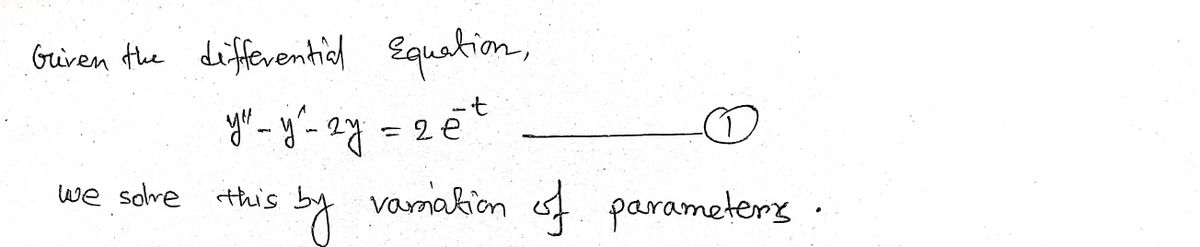 Given the differential Equation,
y'' - y' - 2y = 2e^-t ——— ①
we solve this by variation of parameters.